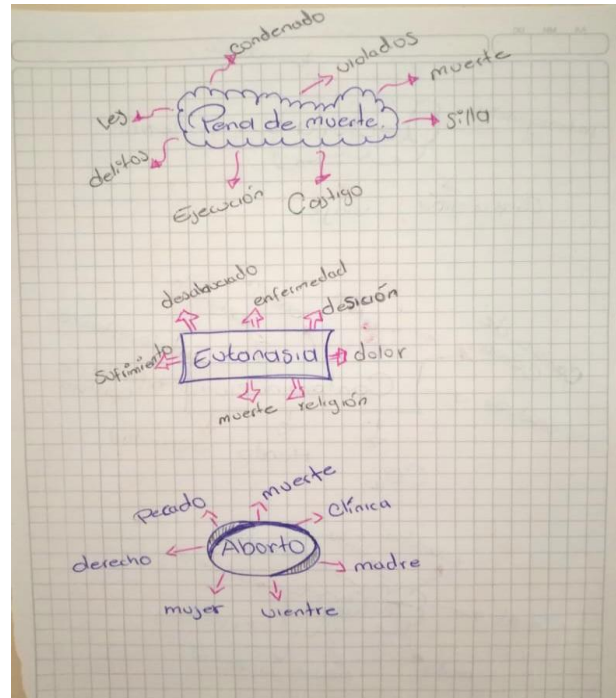 condenado
violados
muerte
Ley
Pena de muerte.
silla
delitos
Ejecución
Castigo
desahuciado
enfermedad
desición
sufrimiento
Eutanasia
dolor
muerte
religión
pecado
muerte
Clínica
derecho
Aborto
madre
mujer
vientre